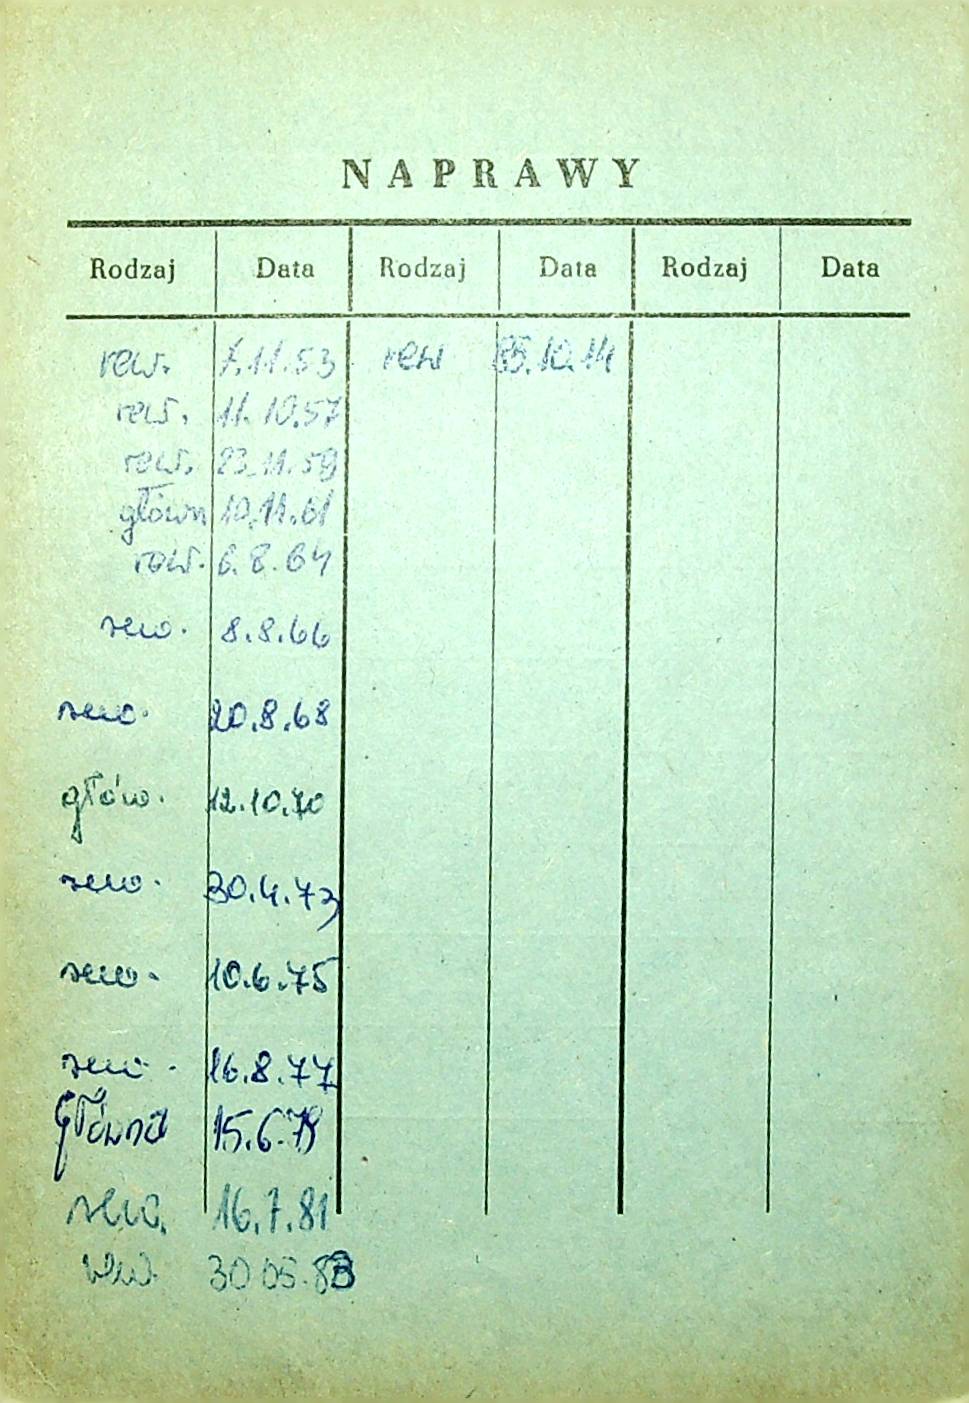 NAPRAWY
Rodzaj Data Rodzaj Data Rodzaj Data
rew. 7.11.53 rew 85.10.14
rew. 11.10.57
rew. 23.11.59
główn 10.11.61
rew. 6.8.64
rew. 8.8.66
rew. 20.8.68
głów. 12.10.70
rew. 30.4.73
rew. 10.6.75
rew. 16.8.77
Główna 15.6.79
rew. 16.7.81
rew. 30 05.83